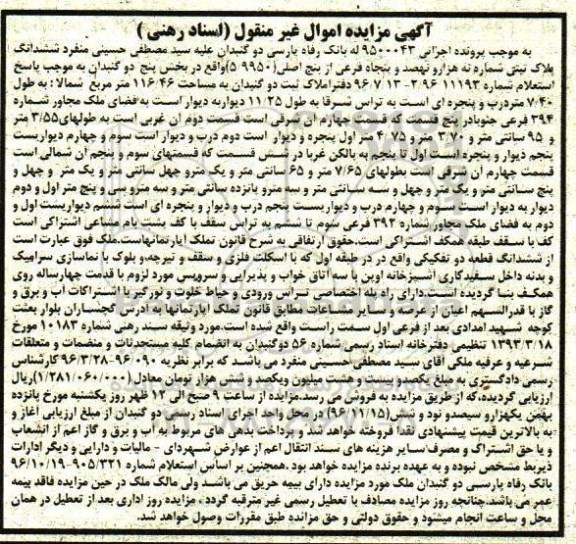 آگهی مزایده اموال غیر منقول (اسناد رهنی)
به موجب پرونده اجرایی ۹۵۰۰۰۴۳ له بانک رفاه پارسی دو گنبدان علیه سید مصطفی حسینی منفرد ششدانگ
پلاک ثبتی شماره نه هزارو نهصد و پنجاه فرعی از پنج اصلی(۵۹۹۵۰)واقع در بخش پنج دو گنبدان به موجب پاسخ
استعلام شماره ۱۱۱۹۳-۲۰۳۹۶ ۹۶/۷/۱۳ دفتراملاک ثبت دو گنبدان به مساحت ۱۱۶/۴۶ متر مربع شمالا : به طول
۷/۴۰ متردرب و پنجره ای است به تراس شرقا به طول ۱۱/۲۵ دیواربه دیوار است به فضای ملک مجاور شماره
۳۹۴ فرعی جنوبادر پنج قسمت که قسمت چهارم آن شرقی است قسمت دوم آن غربی است به طولهای۳/۵۵ متر
و ۹۵ سانتی متر و ۳/۷۰ متر و ۴/۷۵ متر اول پنجره و دیوار است دوم درب و دیوار است سوم و چهارم دیواریست
پنجم دیوار و پنجره است اول تا پنجم به بالکن غربا در شش قسمت که قسمتهای سوم و پنجم آن شمالی است
قسمت چهارم آن شرقی است بطولهای ۷/۶۵ متر و ۶۵ سانتی متر و یک مترو چهل سانتی متر و یک متر و چهل و
پنج سانتی متر و یک متر و چهل و سه سانتی متر و سه مترو پانزده سانتی متر و سه مترو سی و پنج متر اول و دوم
دیوار به دیوار است سوم و چهارم درب و دیواریست پنجم درب و دیوار و پنجره ای است ششم دیواریست اول و
دوم به فضای ملک مجاور شماره ۳۹۲ فرعی سوم تا ششم به تراس سقف با کف پشت بام مشاعی اشتراکی است
کف با سقف طبقه همکف اشتراکی است.حقوق ارتفاقی به شرح قانون تملک آپارتمانهاست.ملک فوق عبارت است
از ششدانگ قطعه دو تفکیکی واقع در در طبقه اول که با اسکلت فلزی و سقف و تیرچه،و بلوک با نماسازی سرامیک
و بدنه داخل سفیدکاری آشپزخانه اوپن با سه اتاق خواب و پذیرایی و سرویس مورد لزوم با قدمت چهارساله روی
همکف بنا گردیده است.دارای راه پله اختصاصی تراس ورودی و حیاط خلوت و نورگیر با اشتراکات آب و برق و
گاز با قدرالسهم اعیان از عرصه و سایر مشاعات مطابق قانون تملک آپارتمانها به آدرس گچساران بلوار بعثت
کوچه شهید امدادی بعد از فرعی اول سمت راست واقع شده است.مورد وثیقه سند رهنی شماره ۱۰۱۸۳ مورخ
۱۳۹۳/۳/۱۸ تنظیمی دفترخانه اسناد رسمی شماره ۵۶ دوگنبدان به انضمام کلیه مستحدثات و منضمات و متعلقات
شرعیه و عرفیه ملکی آقای سید مصطفی حسینی منفرد می باشد که برابر نظریه ۹۶۰۰۹۰-۹۶/۳/۲۸ کارشناس
رسمی دادگستری به مبلغ یکصدو بیست و هشت میلیون ویکصد و شش هزار تومان معادل (۱/۲۸۱/۰۶۰/۰۰۰)ریال
ارزیابی گردیده،که از طریق مزایده به فروش می رسد.مزایده از ساعت ۹ صبح الی ۱۲ ظهر روز یکشنبه مورخ پانزده
بهمن یکهزارو سیصدو نود و شش(۹۶/۱۱/۱۵) در محل واحد اجرای اسناد رسمی دو گنبدان از مبلغ ارزیابی آغاز و
به بالاترین قیمت پیشنهادی نقدا فروخته خواهد شد و پرداخت بدهی های مربوط به آب و برق و گاز اعم از انشعاب
و یا حق اشتراک و مصرف سایر هزینه های سند انتقال اعم از عوارض شهرداری - مالیات و دارایی و دیگر ادارات
ذیربط مشخص نبوده و به عهده برنده مزایده خواهد بود .همچنین بر اساس استعلام شماره ۹۰۵/۳۲۱-۹۶/۱۰/۱۹
بانک رفاه پارسی دو گنبدان ملک مورد مزایده دارای بیمه حریق می باشد ولی مالک ملک در حین مزایده فاقد بیمه
عمر می باشد.چنانچه روز مزایده مصادف با تعطیل رسمی غیر مترقبه گردد ، مزایده روز اداری بعد از تعطیل در همان
محل و ساعت انجام میشود و حقوق دولتی و حق مزایده طبق مقررات وصول خواهد شد.